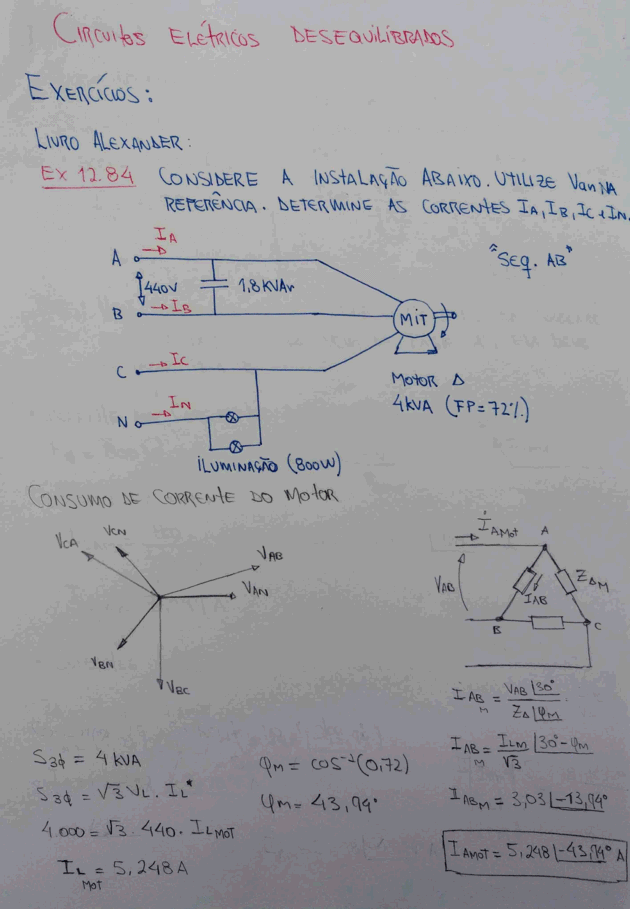 CIRCUITOS ELÉTRICOS DESEQUILIBRADOS
EXERCÍCIOS:
LIVRO ALEXANDER:
EX 12.84 CONSIDERE A INSTALAÇÃO ABAIXO. UTILIZE Van NA
REFERÊNCIA. DETERMINE AS CORRENTES IA, IB, IC e IN.
"SEQ. AB"
IA
A
440V
1,8 KVAr
IB
B
MIT
IC
C
MOTOR Δ
4KVA (FP=72%)
IN
N
ILUMINAÇÃO (800W)
CONSUMO DE CORRENTE DO MOTOR
VCA
VCN
VAB
VAN
VBN
VBC
IAMot
A
VAB
IAB
ZΔM
B
C
IABM = VAB∠30° / ZΔ∠φM
IABM = ILM/√3 ∠30°-φM
IABM = 3,03∠-13,94°
IAMOT = 5,248∠-43,94° A
S3φ = 4 KVA
S3φ = √3 VL. IL*
4.000 = √3. 440. ILMOT
ILMot = 5,248 A
φM = cos⁻¹(0,72)
φM = 43,94°